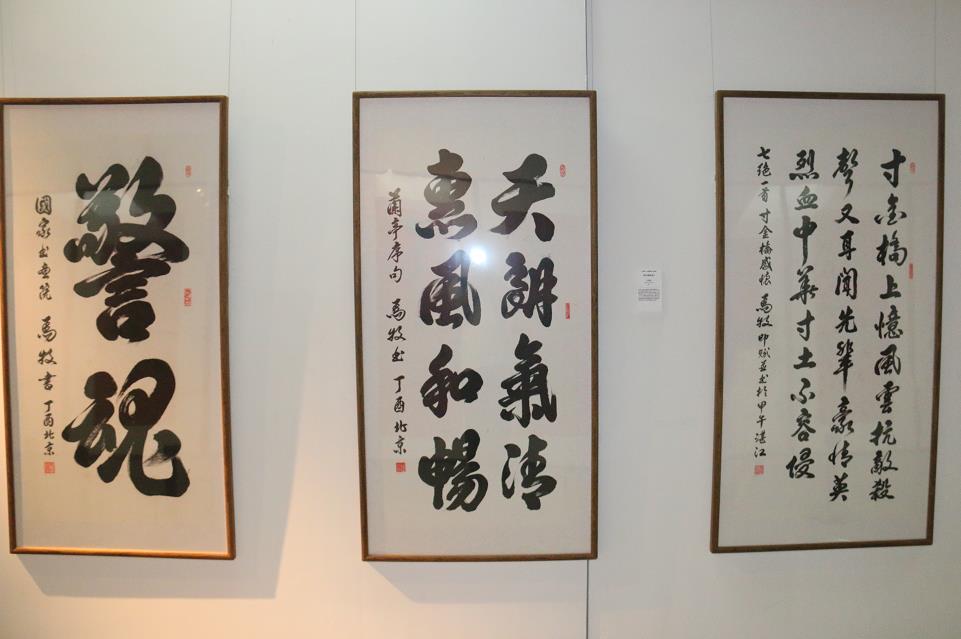 警魂
國家書畫院 馬牧書 丁酉北京
天朗氣清
惠風和暢
蘭亭序句 馬牧書 丁酉北京
寸金橋上憶風雲抗敵殺
聲又耳聞先輩豪情英
烈血中華寸土不容侵
七絕一首 寸金橋感懷 馬牧即賦並書於甲午湛江